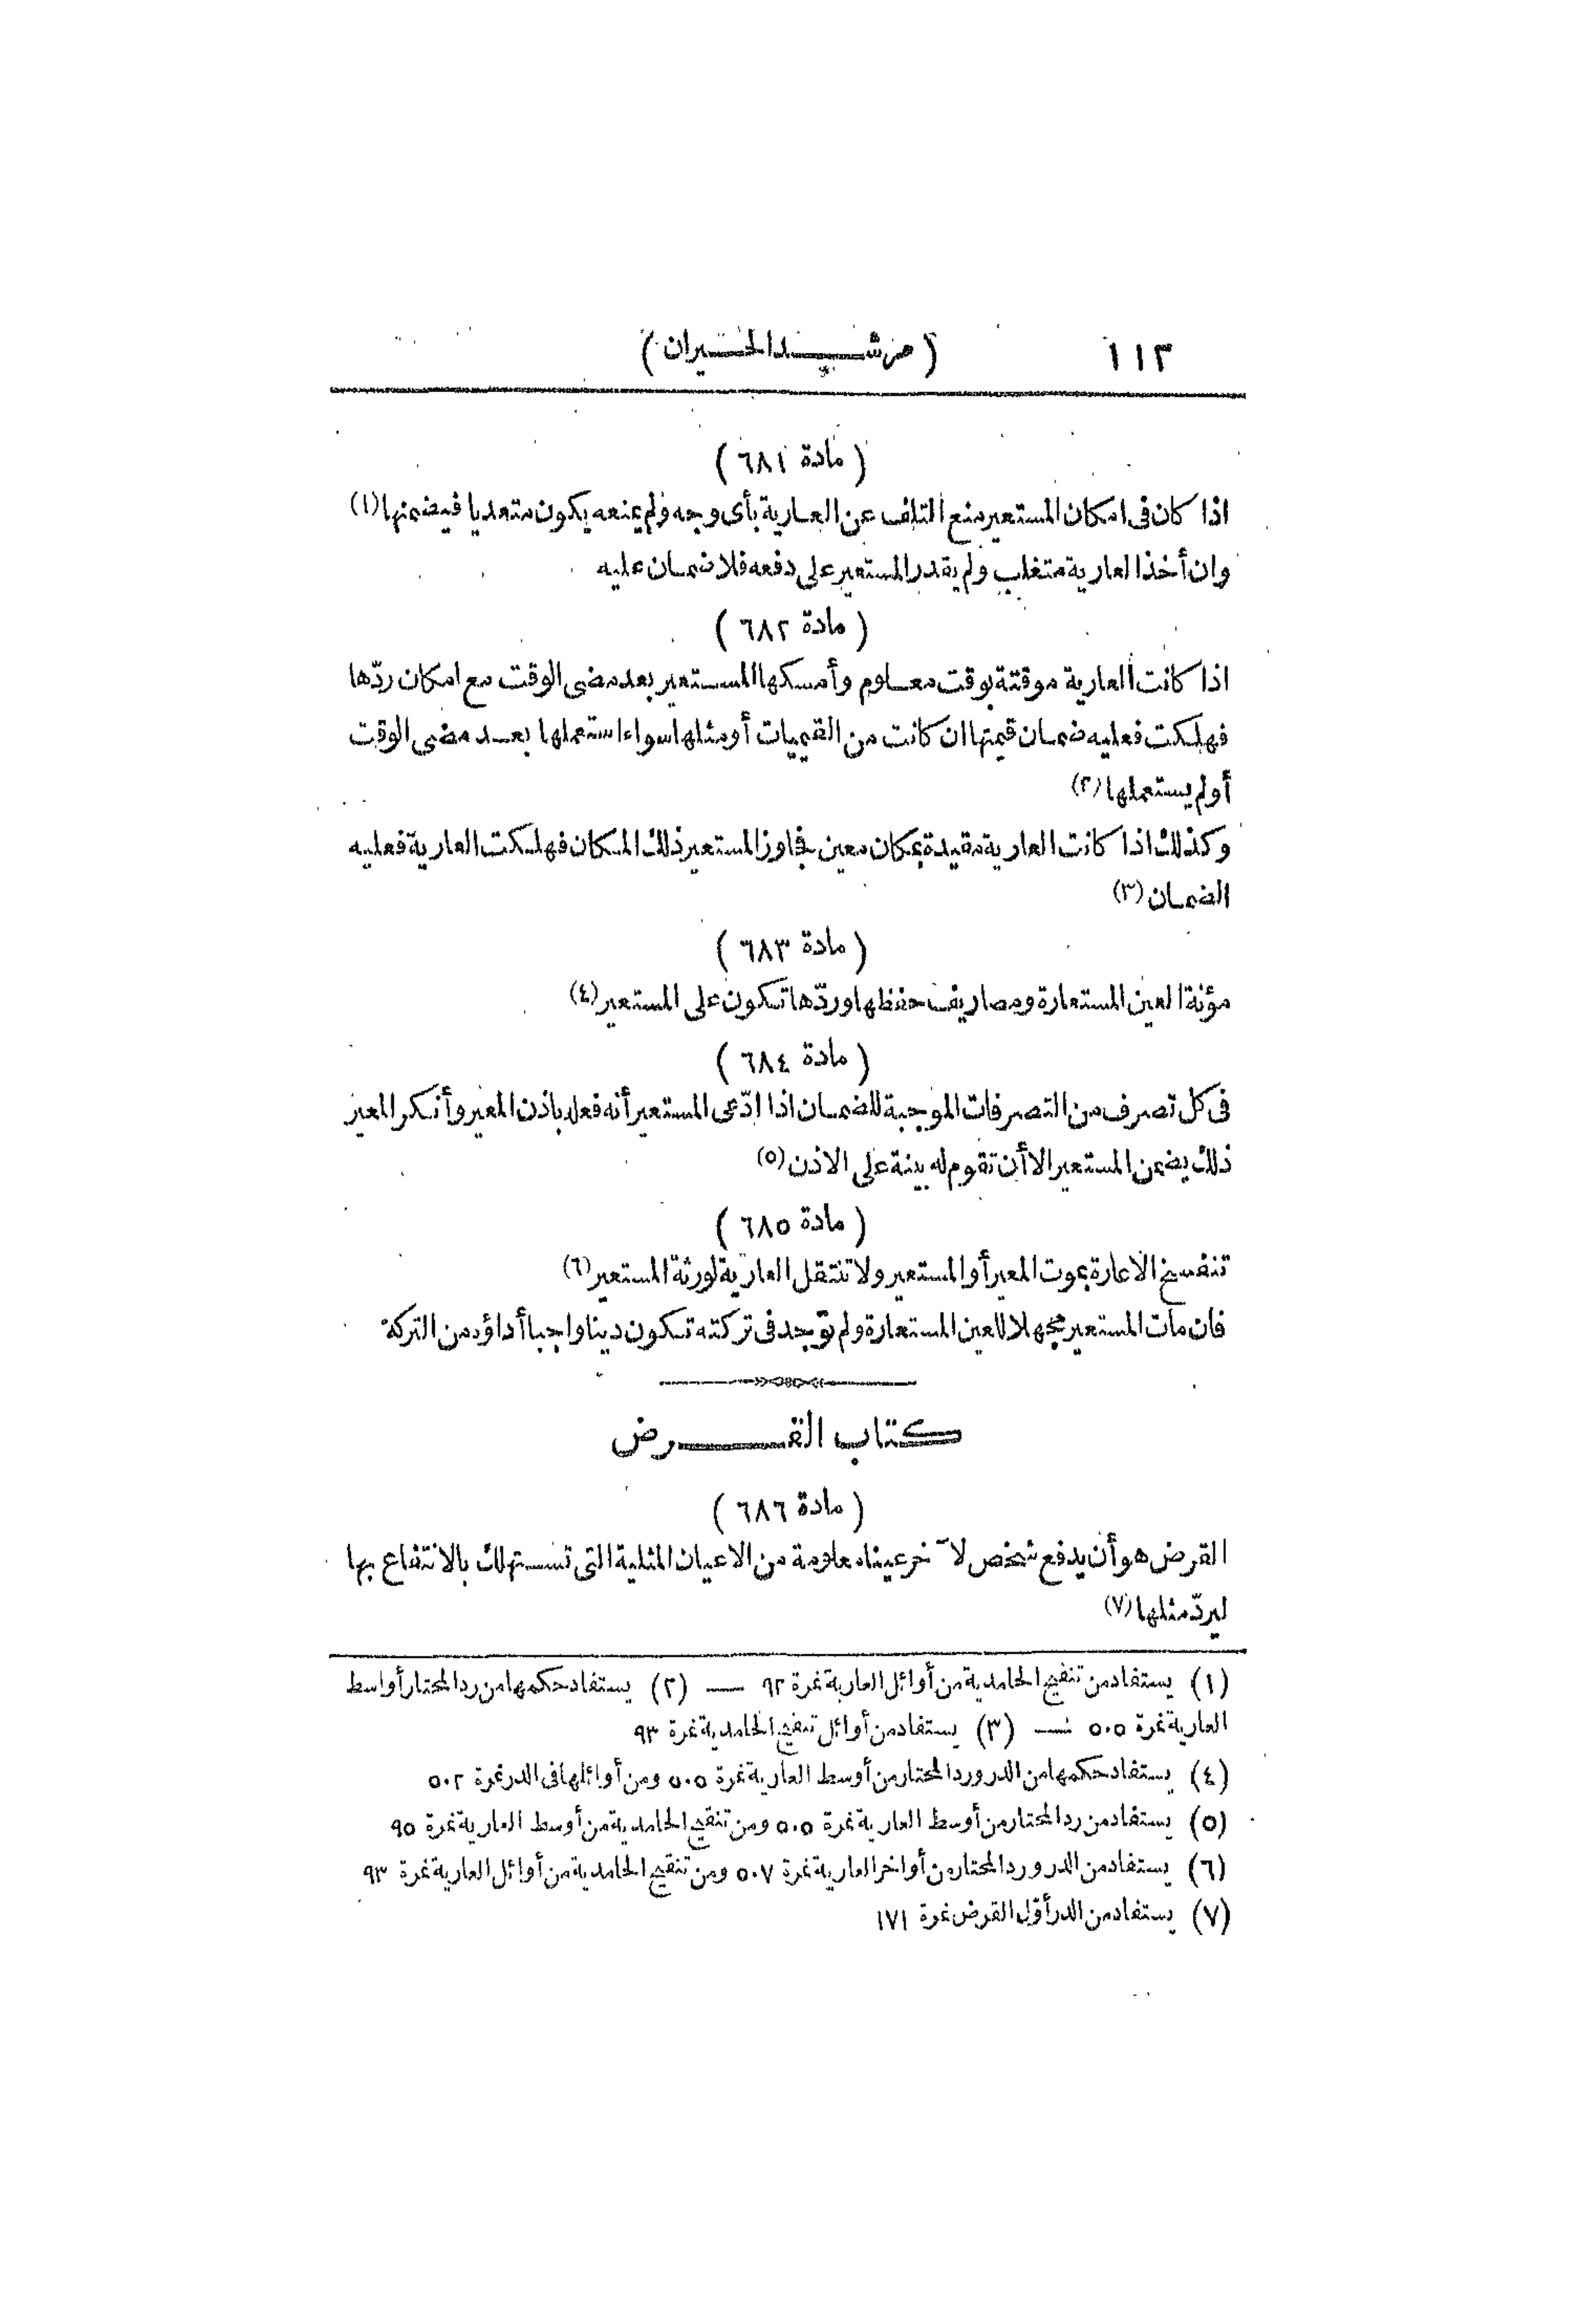 ١١٣ (مرشد الحيران)
(مادة ٦٨١)
اذا كان فى امكان المستعير منع التلف عن العارية بأى وجه ولم يمنعه يكون متعديا فيضمنها (١)
وان أخذ العارية متغلب ولم يقدر المستعير على دفعه فلا ضمان عليه
(مادة ٦٨٢)
اذا كانت العارية موقتة بوقت معلوم وأمسكها المستعير بعد مضى الوقت مع امكان ردّها
فهلكت فعليه ضمان قيمتها ان كانت من القيميات أو مثلها سواء استعملها بعد مضى الوقت
أو لم يستعملها (٢)
وكذلك اذا كانت العارية مقيدة بمكان معين فجاوز المستعير ذلك المكان فهلكت العارية فعليه
الضمان (٣)
(مادة ٦٨٣)
مؤنة العين المستعارة ومصاريف حفظها وردّها تكون على المستعير (٤)
(مادة ٦٨٤)
فى كل تصرف من التصرفات الموجبة للضمان اذا ادّعى المستعير أنه فعله باذن المعير وأنكر المعير
ذلك يضمن المستعير الا أن تقوم له بينة على الاذن (٥)
(مادة ٦٨٥)
تنفسخ الاعارة بموت المعير أو المستعير ولا تنتقل العارية لورثة المستعير (٦)
فان مات المستعير مجهلا للعين المستعارة ولم توجد فى تركته تكون دينا واجبا أداؤه من التركة
كتاب القرض
(مادة ٦٨٦)
القرض هو أن يدفع شخص لآخر عينا معلومة من الاعيان المثلية التى تستهلك بالانتفاع بها
ليردّ مثلها (٧)
(١) يستفاد من تنقيح الحامدية من أوائل العارية نمرة ٩٢ — (٢) يستفاد حكمها من رد المحتار أواسط
العارية نمرة ٥٠٥ — (٣) يستفاد من أوائل تنقيح الحامدية نمرة ٩٣
(٤) يستفاد حكمها من الدر ورد المحتار من أوسط العارية نمرة ٥٠٥ ومن أوائلها فى الدر نمرة ٥٠٢
(٥) يستفاد من رد المحتار من أوسط العارية نمرة ٥٠٥ ومن تنقيح الحامدية من أوسط العارية نمرة ٩٥
(٦) يستفاد من الدر ورد المحتار من أواخر العارية نمرة ٥٠٧ ومن تنقيح الحامدية من أوائل العارية نمرة ٩٣
(٧) يستفاد من الدر أوّل القرض نمرة ١٧١